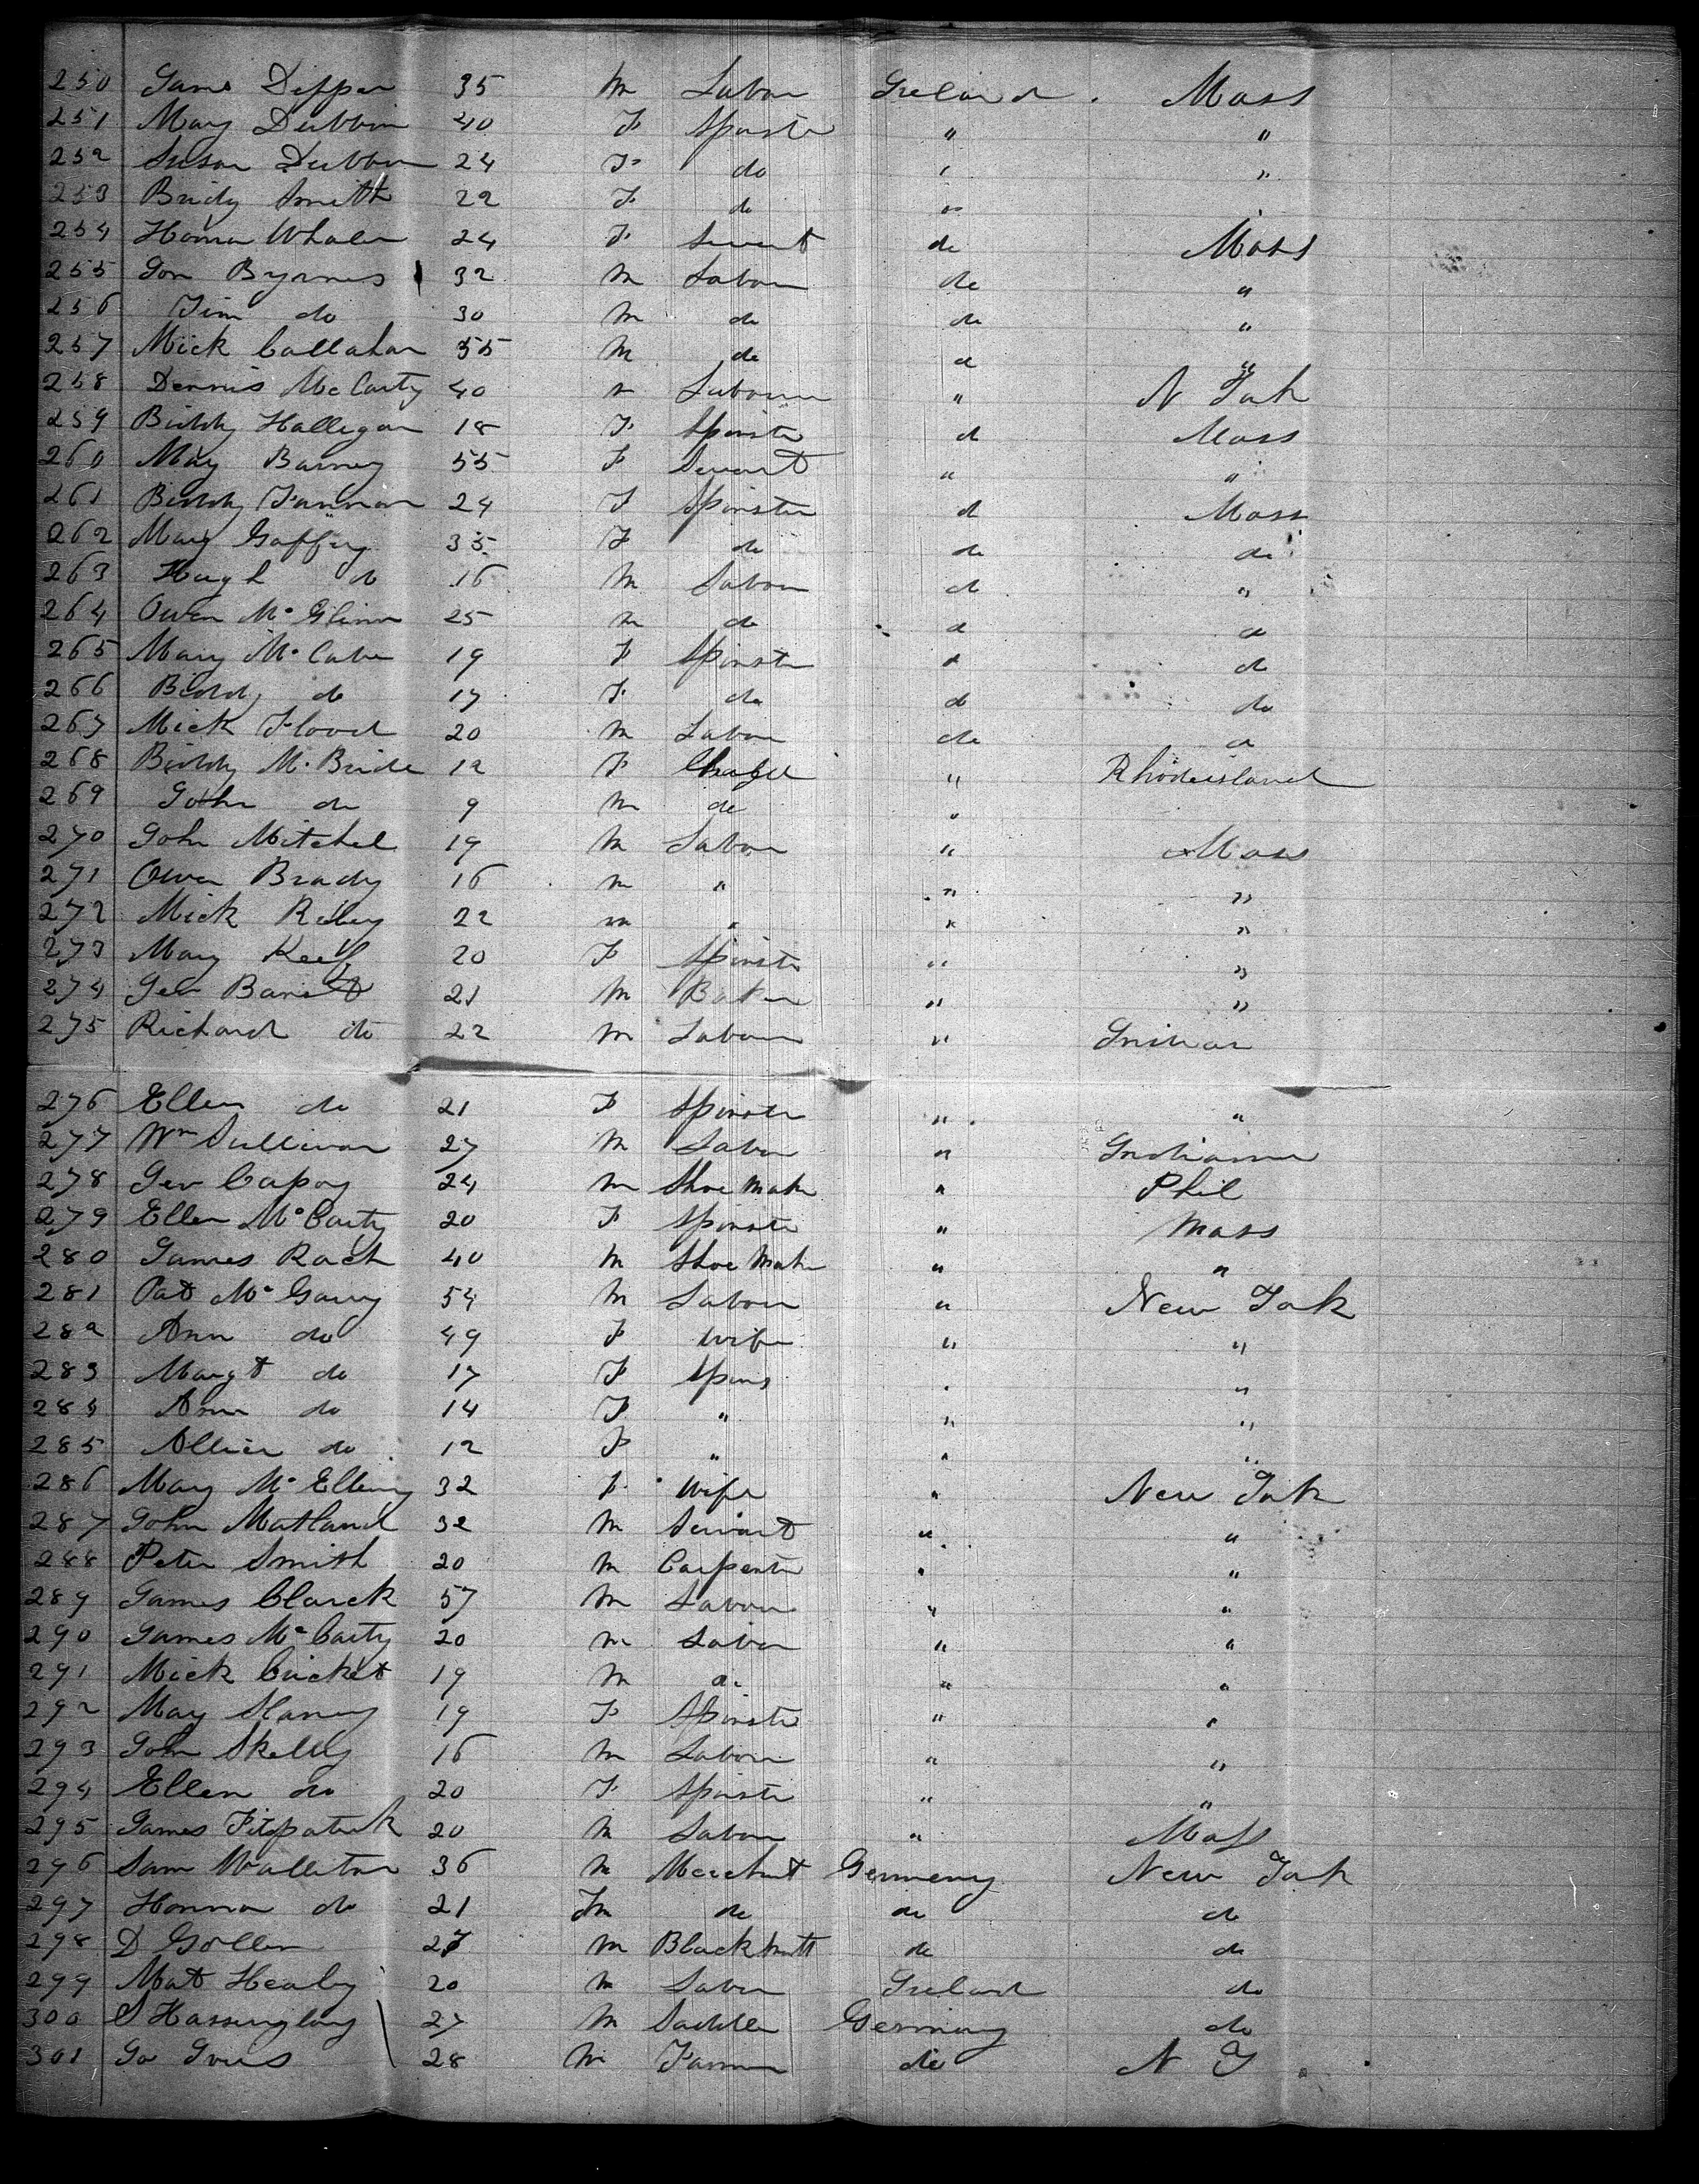 250 James Dipper 35 M Labour Ireland. Mass
251 Mary Dubbin 40 F Spinster " "
252 Susan Dubbin 24 F do " "
253 Bridy Smith 22 F do " "
254 Honor Whalen 24 F Servant do Mass
255 Jon Byrnes 32 M Labour do "
256 Tim do 30 M do do "
257 Mick Callahan 35 M do d "
258 Dennis McCarty 40 " Labourer " N York
259 Biddy Halligan 18 F Spinster d Mass
260 May Barney 55 F Servant " "
261 Biddy Fannon 24 F Spinster d Mass
262 Mary Gaffrey 35 F do do do
263 Hugh do 16 M Labour d "
264 Owen McGlinn 25 m do d d
265 Mary McCabe 19 F Spinster d do
266 Biddy do 17 F do d do
267 Mick Flood 20 M Labour do d
268 Biddy McBride 12 F " Rhodeisland
269 John do 9 M do "
270 John Mitchel 19 M Labour " Mass
271 Owen Brady 16 m " " "
272 Mick Reley 22 m " " "
273 Mary Keef 20 F Spinster " "
274 Geo Barrett 21 M Baker " "
275 Richard do 22 M Labour "
276 Ellen do 21 F Spinster " "
277 Wm Sullivan 27 M Labour " Indianna
278 Geo Capoy 24 m Shoe Maker " Phil
279 Ellen McCarty 20 F Spinster " Mass
280 James Rach 40 M Shoe Maker " "
281 Pat McGarry 54 M Labour " New York
282 Ann do 49 F Wife " "
283 Margt do 17 F Spins " "
284 Ann do 14 F " " "
285 Allice do 12 F " " "
286 Mary McElleny 32 F Wife " New York
287 John Matland 32 M Servant " "
288 Peter Smith 20 M Carpenter " "
289 James Clarck 57 M Labour " "
290 James McCarty 20 m Labour " "
291 Mick Cricket 19 M do " "
292 May Slaney 19 F Spinster " "
293 John Skelly 16 M Labour " "
294 Ellen do 20 F Spinster " "
295 James Fitzpatrick 20 M Labour " Mass
296 Sam Walleton 36 M Merchant Germeny New York
297 Honnor do 21 Fm do do do
298 D Gollen 27 M Blacksmith do do
299 Mat Healy 20 M Labour Ireland do
300 S Hassinglong 27 M Saddler Germany do
301 28 M Farmer do N Y